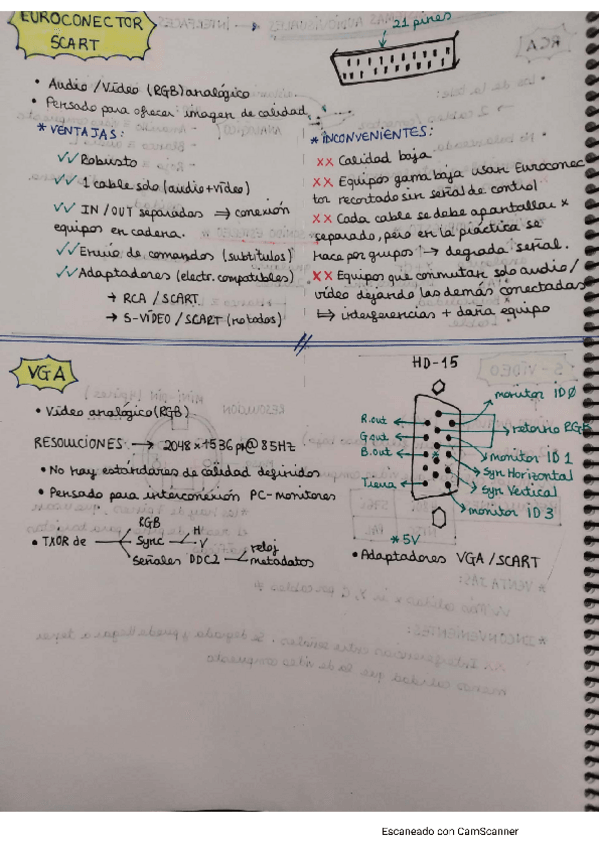 EUROCONECTOR
SCART
21 pines
• Audio / Vídeo (RGB) analógico
• Pensado para ofrecer imagen de calidad
* VENTAJAS:
✓✓ Robusto
✓✓ 1 cable solo (audio+vídeo)
✓✓ IN / OUT separadas ⇒ conexión
equipos en cadena.
✓✓ Envío de comandos (subtítulos)
✓✓ Adaptadores (electr. compatibles)
→ RCA / SCART
→ S-VÍDEO / SCART (notodos)
* INCONVENIENTES:
xx Calidad baja
xx Equipos gama baja usan Euroconec
tor recortado sin señal de control
xx Cada cable se debe apantallar x
separado, pero en la práctica se
hace por grupos → degrada señal.
xx Equipos que conmutan solo audio/
vídeo dejando las demás conectadas
↳ interferencias + daña equipo
VGA
• Vídeo analógico (RGB)
RESOLUCIONES → 2048 x 1536 px@ 85Hz
• No hay estándares de calidad definidos
• Pensado para interconexión PC-monitores
• TXOR de
RGB
Sync
H
V
Señales DDC2
reloj
metadatos
HD-15
monitor ID0
R.out
retorno RGB
G.out
B.out
monitor ID 1
Syn Horizontal
Tierra
Syn Vertical
monitor ID 3
* 5V
• Adaptadores VGA / SCART
Escaneado con CamScanner